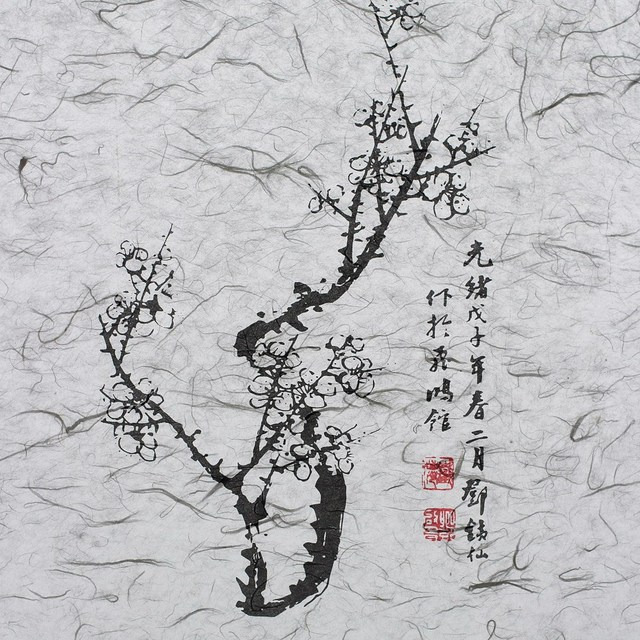 光緒戊子年春二月鄧鐵仙
作於飛鴻館